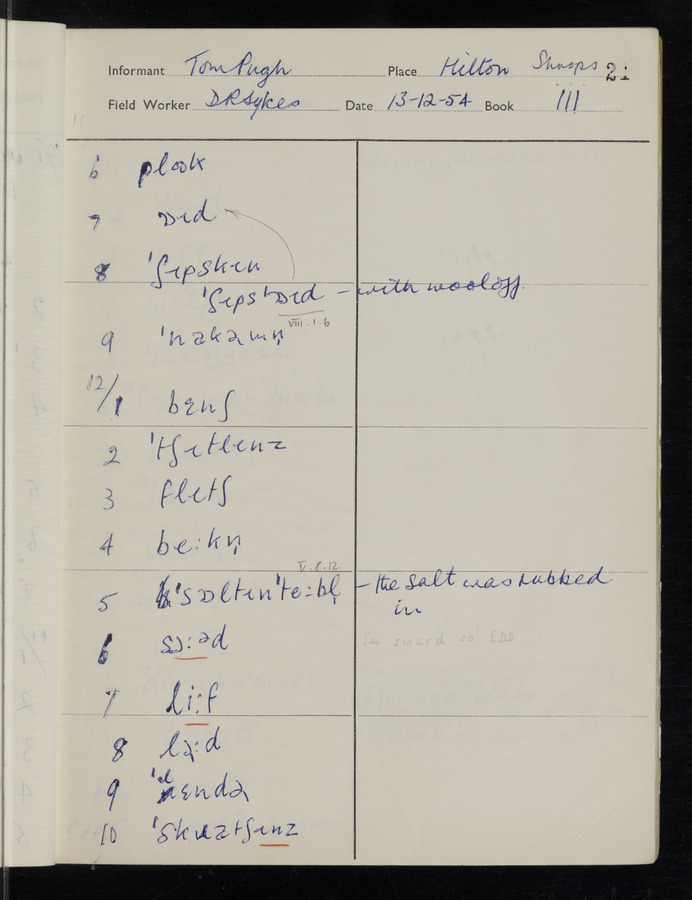 Informant Tom Pugh Place Hilton Shrops 21
Field Worker DRSykes Date 13-12-54 Book III
6 plʊk
7 ɒɪd
8 ˈʃɪpskɪn
ˈʃɪpsˈɒɪd – with wool off.
VIII.1.6
9 ˈnakəmn̩
12/1 bɛnʃ
2 ˈtʃɪtlɪnz
3 flɪtʃ
4 be:kn̩
V.8.12
5 ˈsɒltɪnˈte:bl̩ – the salt was rubbed
in
6 sɔ:əd
Se sward sb¹ EDD
7 li:f
8 la:d
9 ˈɛlɛndə
10 ˈskɹatʃɪnz